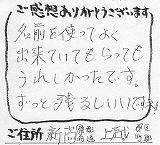 ご感想ありがとうございます
名前を使ってよく
出来ていてもらっても
うれしかったです。
ずっと残るしいいです
ご住所 新潟 都道府県 上越 市区